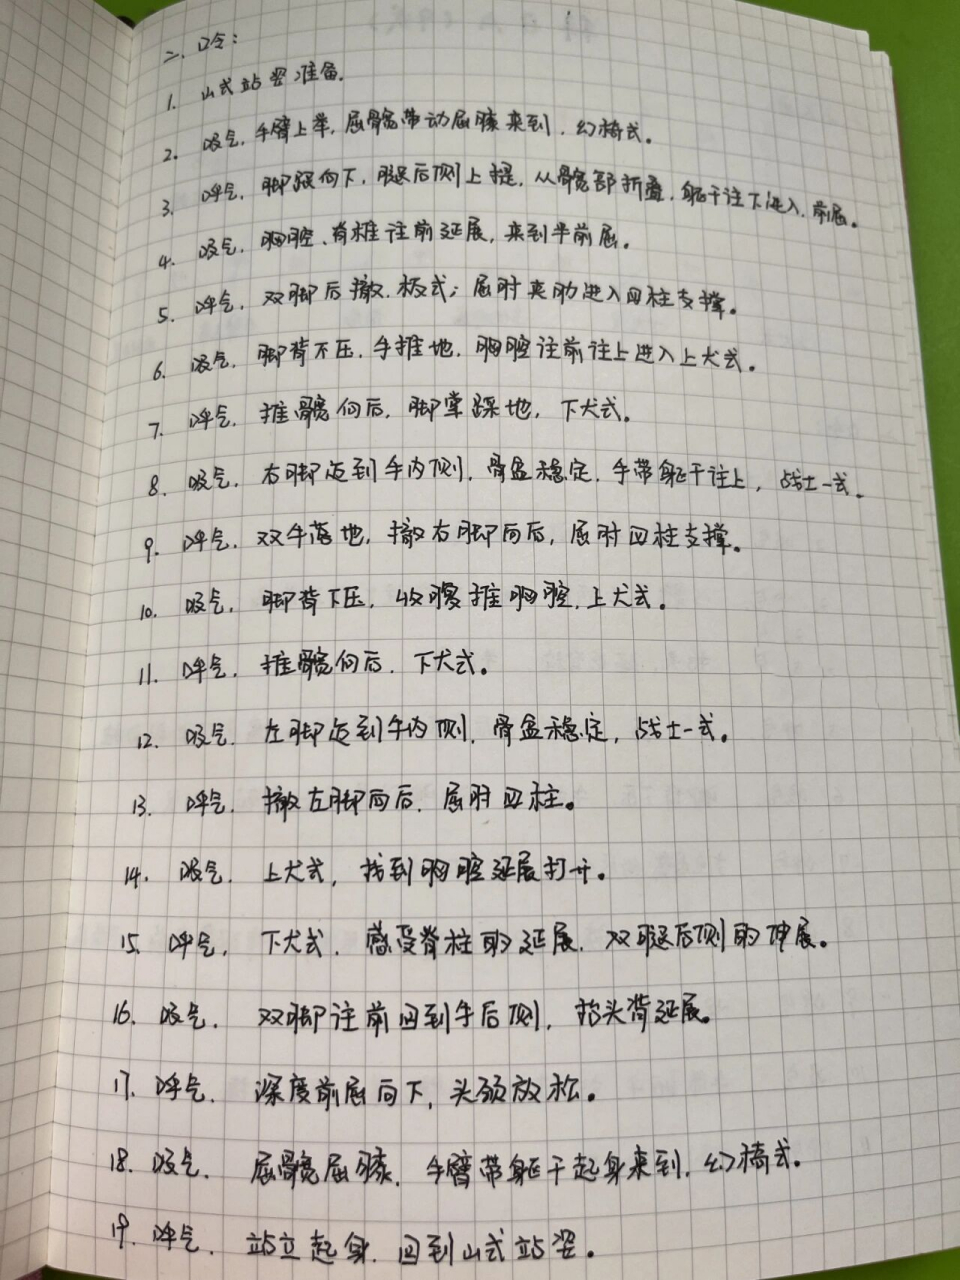 二、口令：
1. 山式站姿准备.
2. 吸气, 手臂上举, 屈髋带动屈膝来到, 幻椅式。
3. 呼气, 脚跟向下, 腿后侧上提, 从髋部折叠, 躯干往下进入, 前屈。
4. 吸气, 胸腔、脊椎往前延展, 来到半前屈。
5. 呼气, 双脚后撤, 板式; 屈肘夹肋进入四柱支撑。
6. 吸气, 脚背下压, 手推地, 胸腔往前往上进入上犬式。
7. 呼气, 推髋向后, 脚掌踩地, 下犬式。
8. 吸气, 右脚迈到手内侧, 骨盆稳定, 手带躯干往上, 战士一式。
9. 呼气, 双手落地, 撤右脚向后, 屈肘四柱支撑。
10. 吸气, 脚背下压, 收腹推胸腔, 上犬式。
11. 呼气, 推髋向后, 下犬式。
12. 吸气, 左脚迈到手内侧, 骨盆稳定, 战士一式。
13. 呼气, 撤左脚向后, 屈肘四柱。
14. 吸气, 上犬式, 找到胸腔延展打开。
15. 呼气, 下犬式, 感受脊柱的延展, 双腿后侧的伸展。
16. 吸气, 双脚往前回到手后侧, 抬头背延展。
17. 呼气, 深度前屈向下, 头颈放松。
18. 吸气, 屈髋屈膝, 手臂带躯干起身来到, 幻椅式.
19. 呼气, 站立起身, 回到山式站姿。